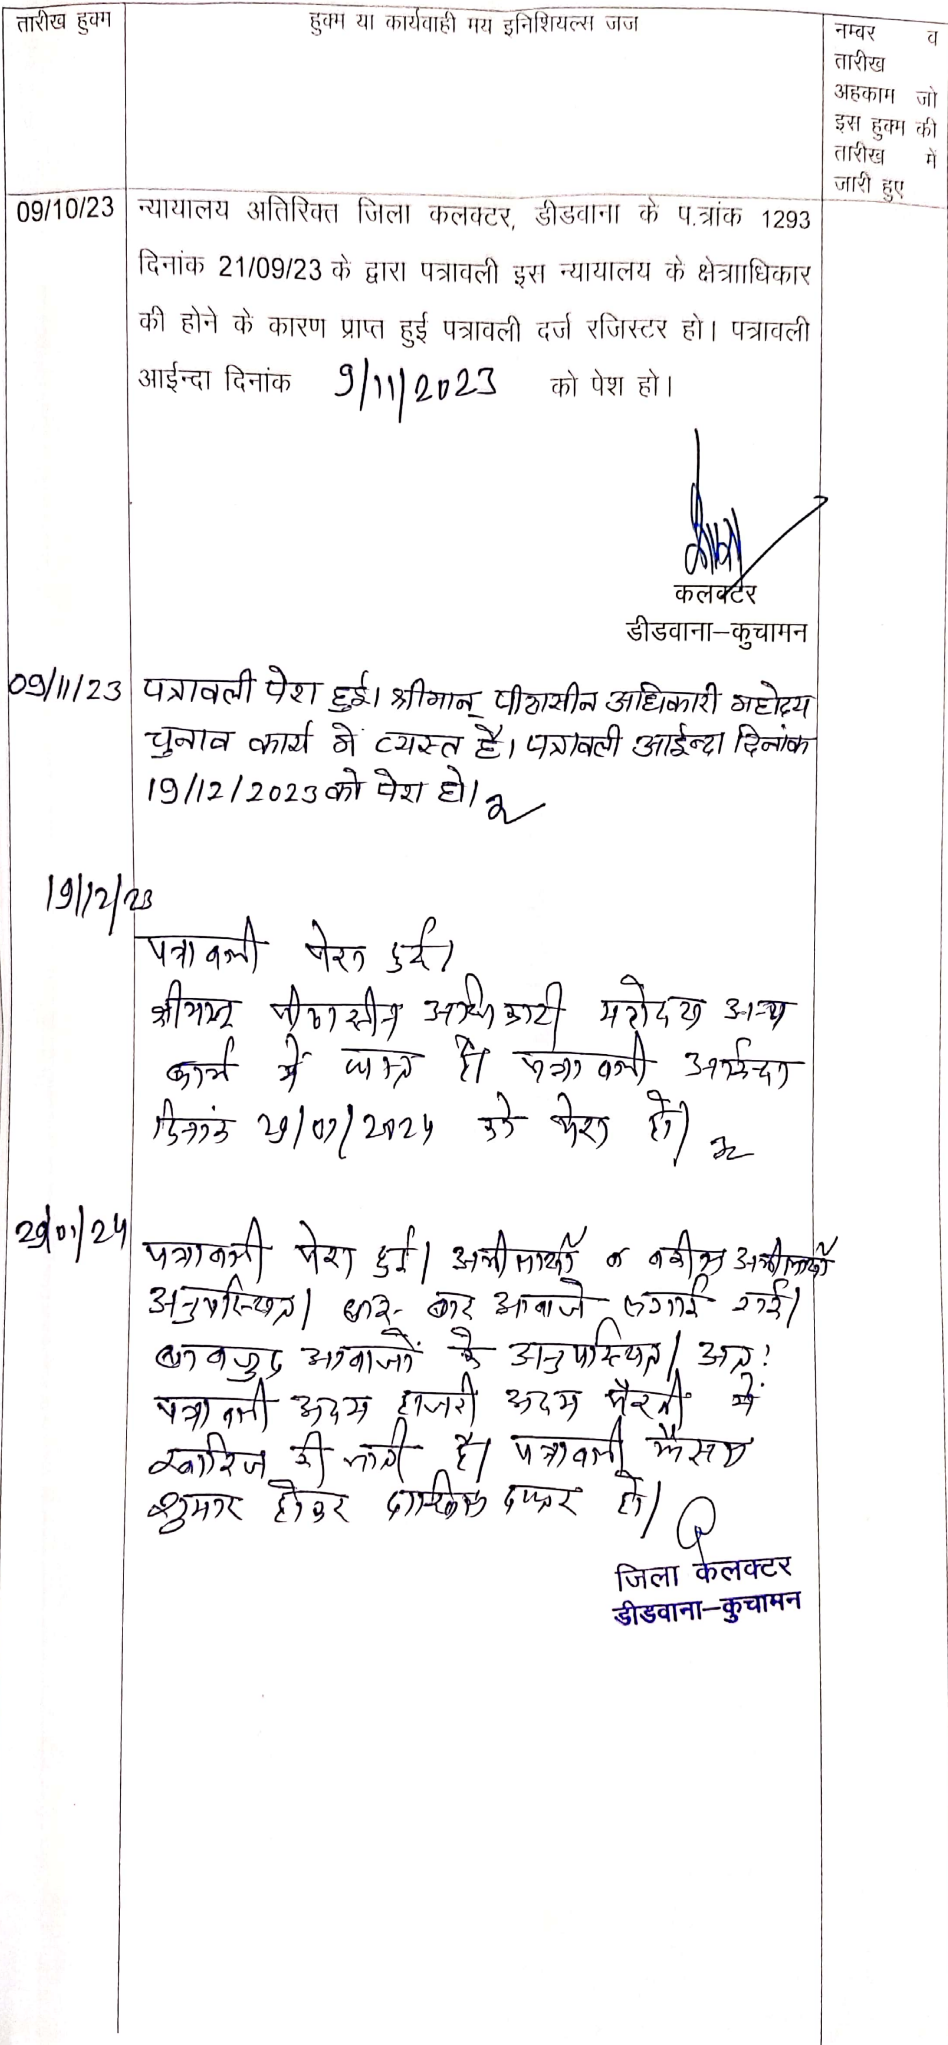 तारीख हुक्म
हुक्म या कार्यवाही मय इनिशियल्स जज
नम्बर व
तारीख
अहकाम जो
इस हुक्म की
तारीख में
जारी हुए
09/10/23
न्यायालय अतिरिक्त जिला कलक्टर, डीडवाना के प.त्रांक 1293
दिनांक 21/09/23 के द्वारा पत्रावली इस न्यायालय के क्षेत्रााधिकार
की होने के कारण प्राप्त हुई पत्रावली दर्ज रजिस्टर हो। पत्रावली
आईन्दा दिनांक 9/11/2023 को पेश हो।
कलक्टर
डीडवाना–कुचामन
09/11/23
पत्रावली पेश हुई। श्रीमान् पीठासीन अधिकारी महोदय
चुनाव कार्य में व्यस्त है। पत्रावली आईन्दा दिनांक
19/12/2023 को पेश हो।
19/12/23
पत्रावली पेश हुई।
श्रीमान् पीठासीन अधिकारी महोदय अन्य
कार्य में व्यस्त है। पत्रावली आईन्दा
दिनांक 29/01/2024 को पेश हो।
29/01/24
पत्रावली पेश हुई। अपीलार्थी व वकील अपीलार्थी
अनुपस्थित। बार-बार आवाजे लगाई गई।
बावजुद आवाजों के अनुपस्थित। अतः
पत्रावली अदम हाजरी अदम पैरवी में
खारिज की जाती है। पत्रावली फैसल
शुमार होकर दाखिल दफ्तर हो।
जिला कलक्टर
डीडवाना–कुचामन